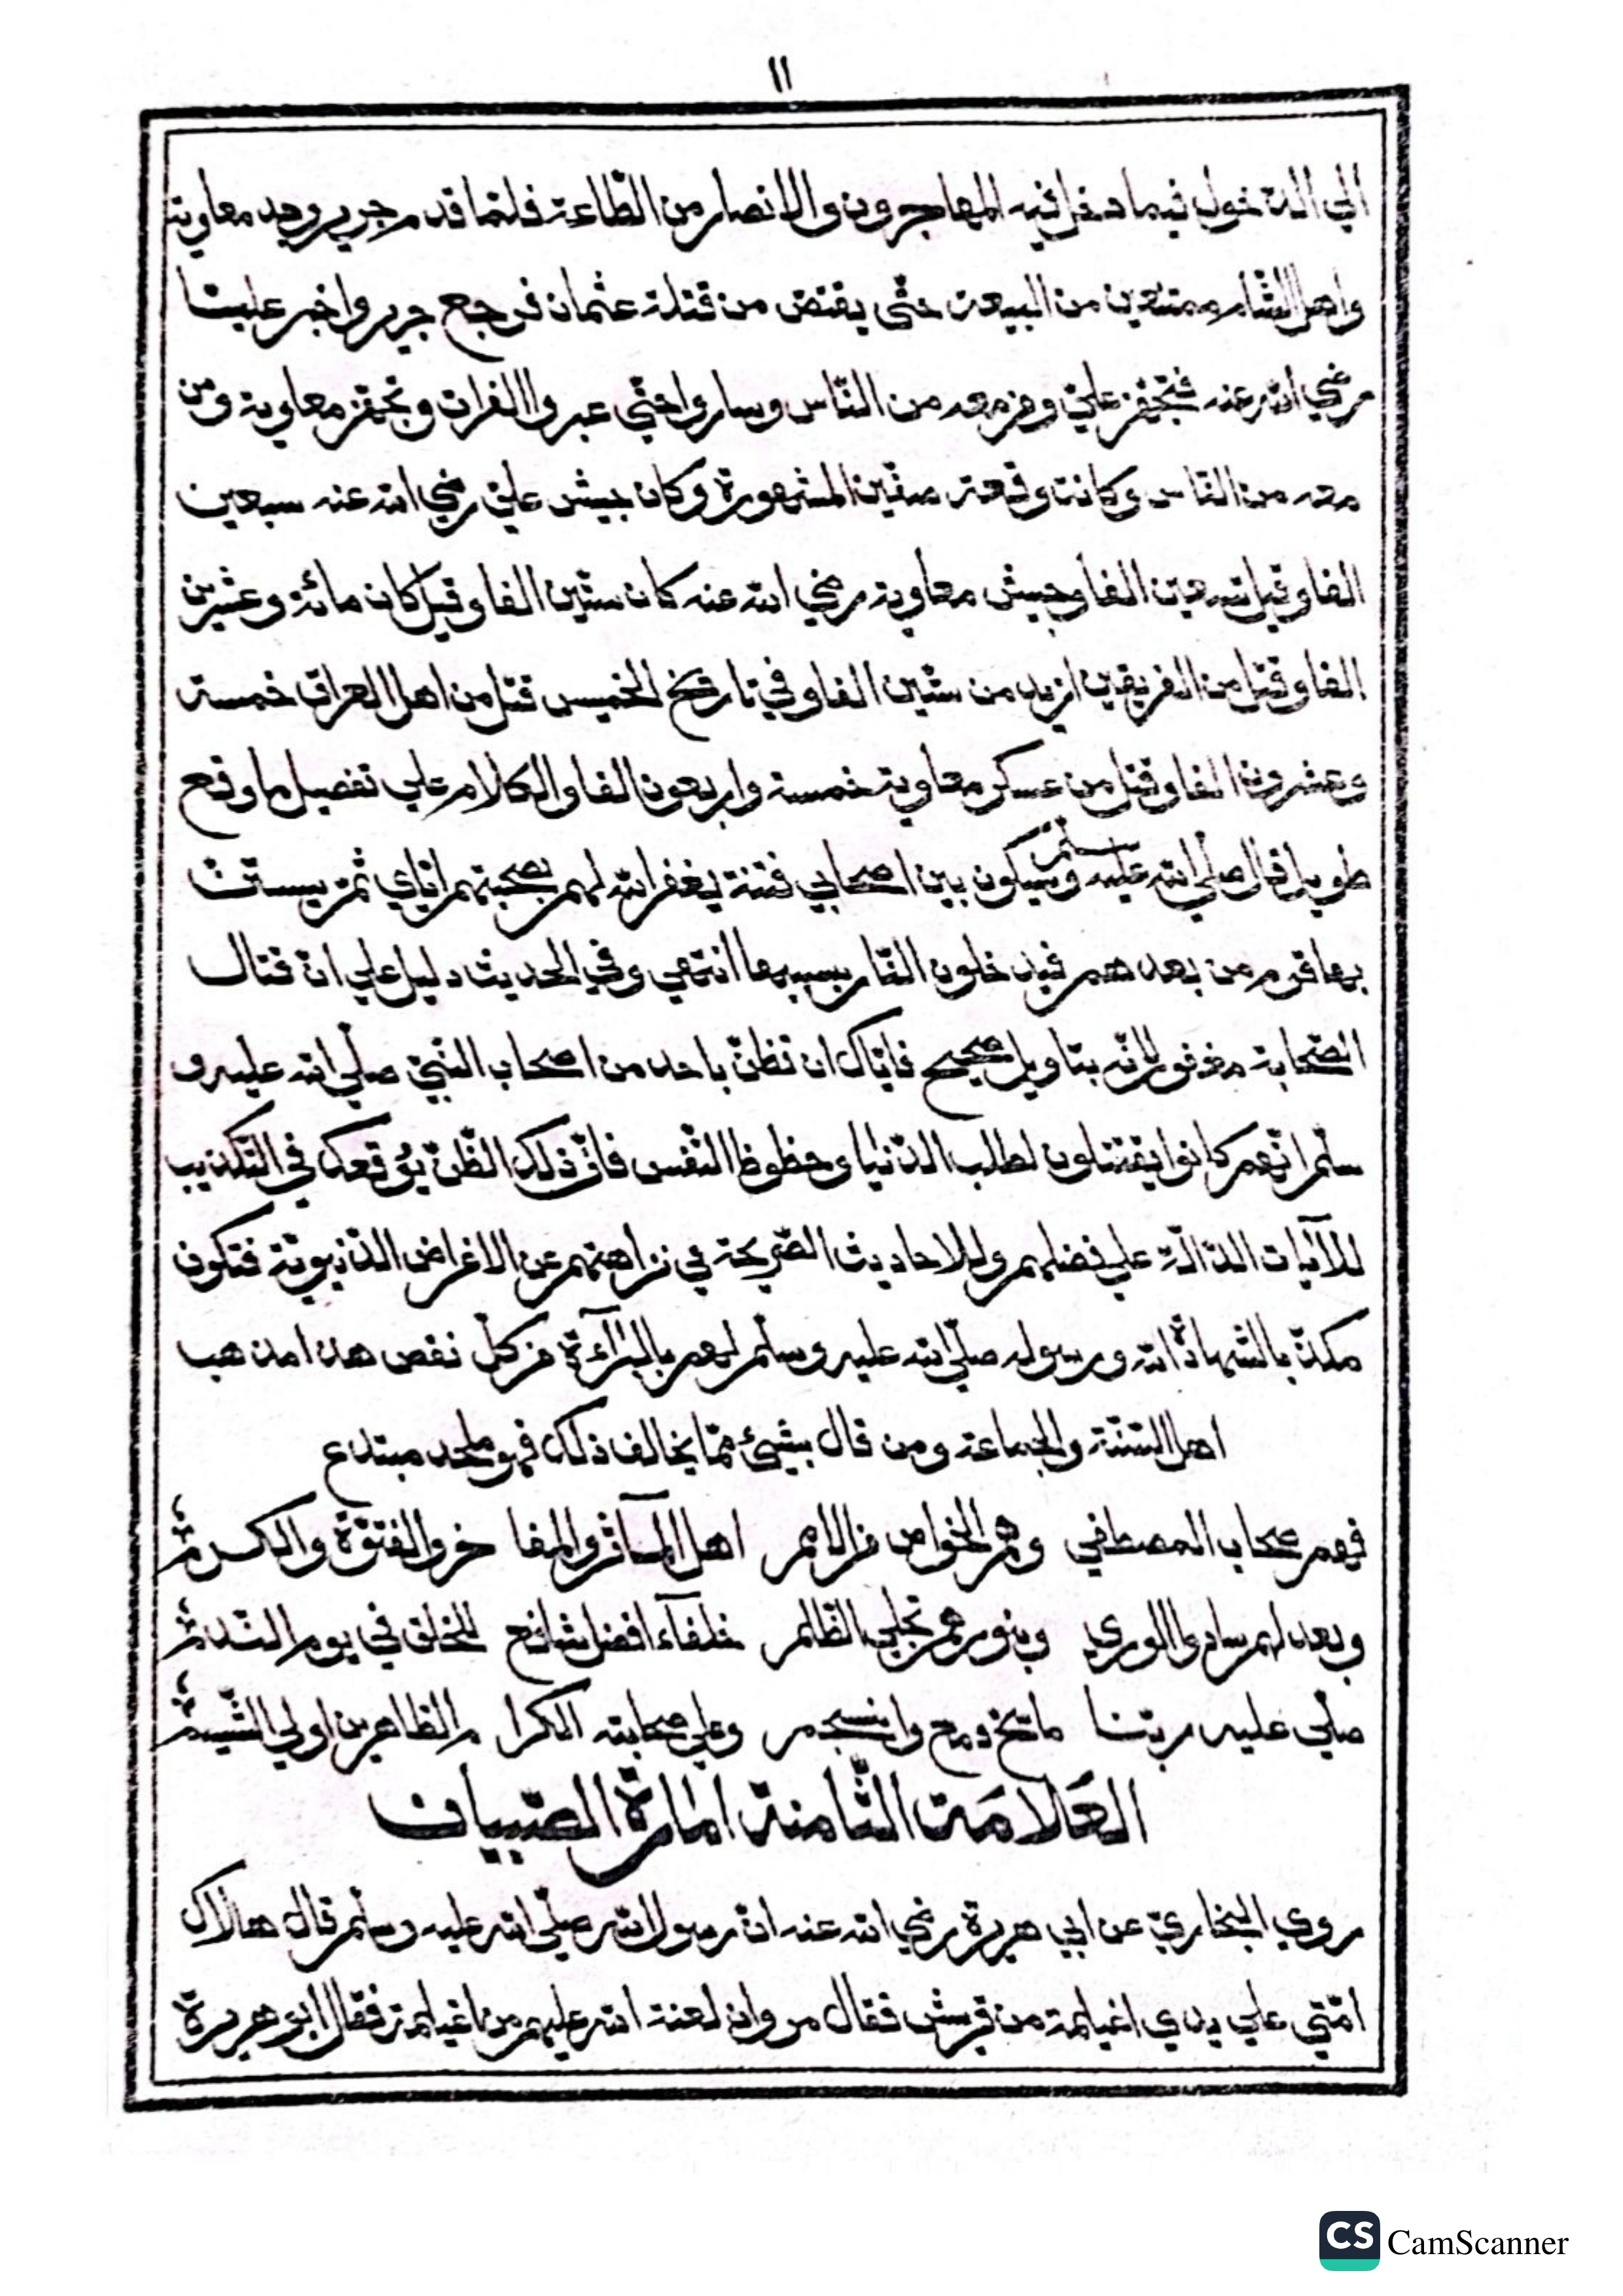 ١١
الي الدخول فيما دخل فيه المهاجرون والانصار من الطّاعة فلمّا قدم جرير وجد معاوية
واهل الشّام ممتنعين من البيعة حتّي يقتصّ من قتلة عثمان فرجع جرير واخبر عليّا
رضي الله عنه فتجهّز عليّ ومن معه من النّاس وساروا حتّي عبروا الفرات وتجهّز معاوية ومن
معه من النّاس وكانت وقعة صفّين المشهورة وكان جيش عليّ رضي الله عنه سبعين
الفا وقيل تسعين الفا وجيش معاوية رضي الله عنه كان ستّين الفا وقيل كان مائة وعشرين
الفا وقتل من الفريقين ازيد من ستّين الفا وفي تاريخ الخميس قتل من اهل العراق خمسة
وعشرون الفا وقتل من عسكر معاوية خمسة واربعون الفا والكلام علي تفصيل ما وقع
طويل قال صلّي الله عليه وسلّم سيكون بين اصحابي فتنة يغفر الله لهم بصحبتهم ايّاي ثمّ يستنّ
بها قوم من بعدهم فيدخلون النّار بسببها انتهي وفي الحديث دليل علي انّ قتال
الصّحابة مغفور لانّه بتاويل صحيح فايّاك ان تظنّ باحد من اصحاب النّبيّ صلّي الله عليه و
سلّم انّهم كانوا يقتتلون لطلب الدّنيا وحظوظ النّفس فانّ ذلك الظّنّ يوقعك في التّكذيب
للآيات الدّالّة علي فضلهم وللاحاديث الصّريحة في نزاهتهم عن الاغراض الدّنيويّة فتكون
مكذّبا لشهادة الله ورسوله صلّي الله عليه وسلّم لهم بالبرآءة من كلّ نقص هذا مذهب
اهل السّنّة والجماعة ومن قال بشيئ ممّا يخالف ذلك فهو ملحد مبتدع
فهم صحاب المصطفي وهم الخواص من الامم اهل المآثر والمفا خر والفتوّة والكرم
وبعدلهم سادوا الوري وبنورهم تجلي الظّلم خلفآء افضل شافع للخلق في يوم النّدم
صلّي عليه ربّنا ما سحّ دمع وانسجم وعلي صحابته الكرا م الطاهرين اولي الشّيم
العلامة الثّامنة امارة الصّبيان
روي البخاريّ عن ابي هريرة رضي الله عنه انّ رسول الله صلّي الله عليه وسلّم قال هلاك
امّتي علي يدي اغيلمة من قريش فقال مروان لعنة الله عليهم من اغيلمة فقال ابو هريرة
CS CamScanner